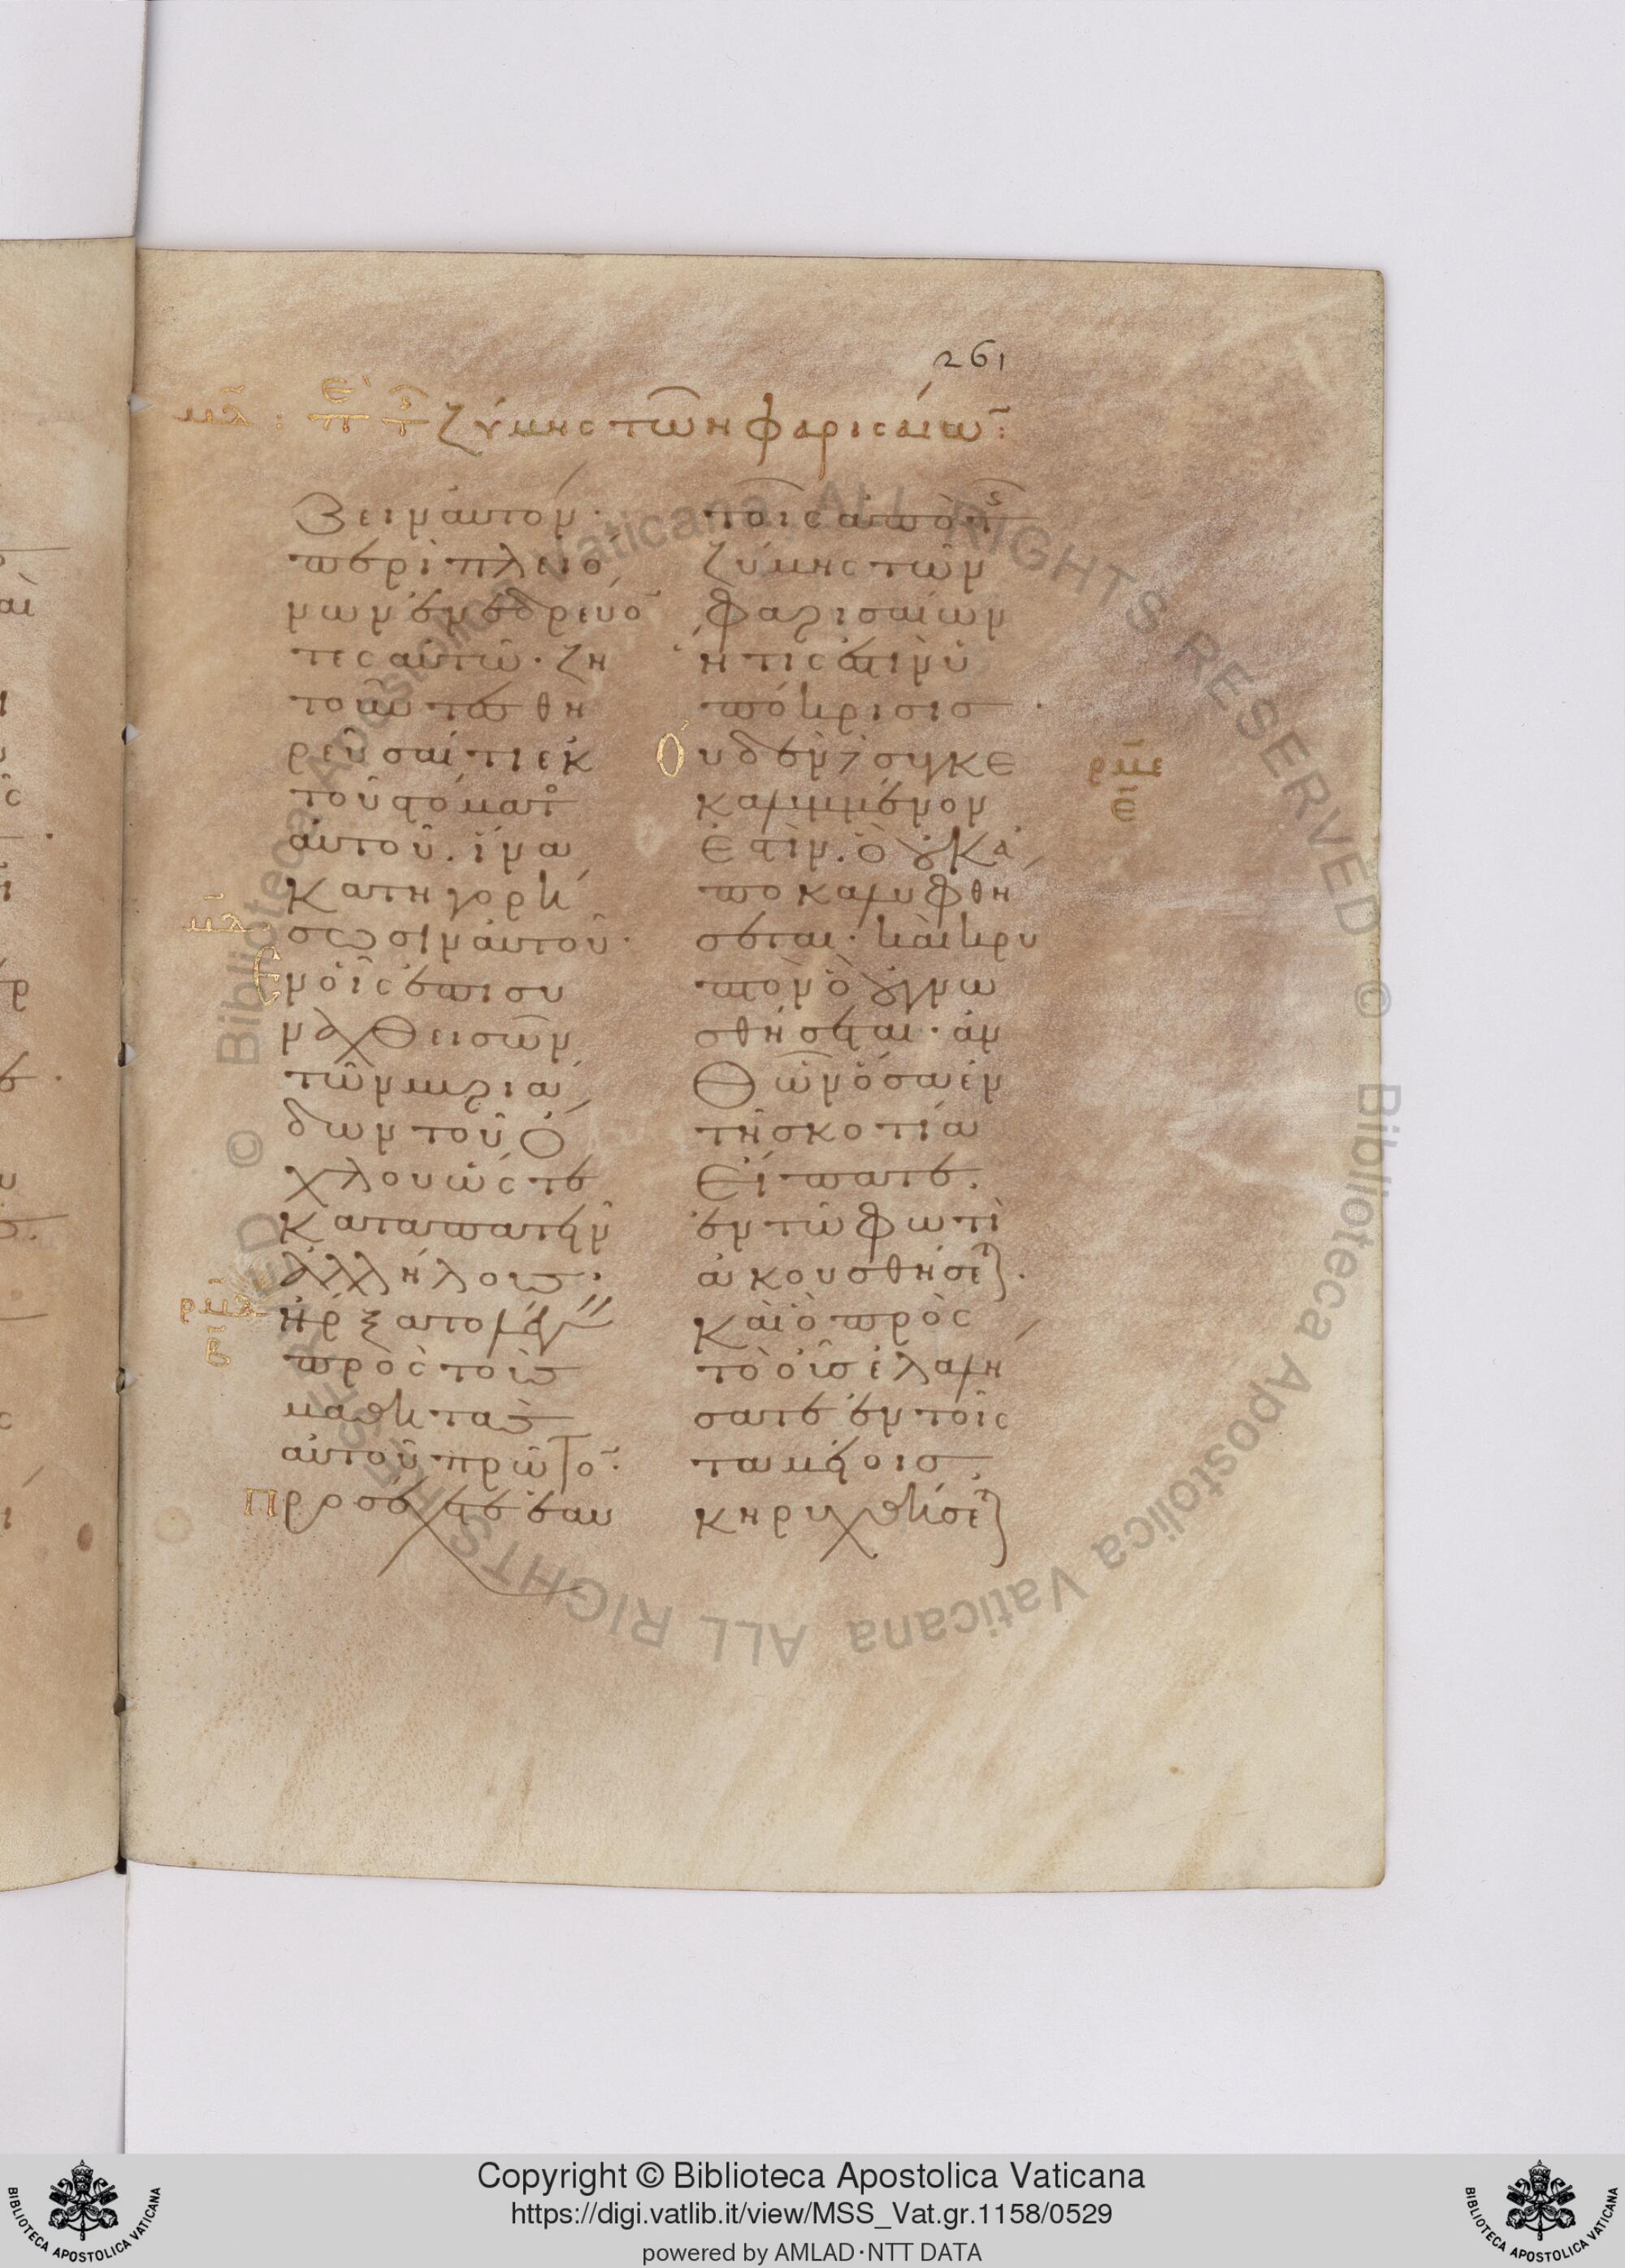 261
μα : περι τς ζύμης τῶν φαρισαίω̄ :
ζειν αὐτὸν ·
περὶ πλειό
νων ἐνεδρεύο̄
τες αὐτῶ · ζη
τοῦντες θη
ρεῦσαί τι ἐκ
τοῦ στόματο
αὐτοῦ . ἵνα
κατηγορή
σωσιν αὐτοῦ ·
μα
Ἐν οἷς ἐπισυ
ναχθεισῶν
τῶν μυριά
δων τοῦ ὄ
χλου ὥστε
καταπατεῖν
ἀλλήλους ·
ρμδ
β
ἤρξατο λέγειν
πρὸς τοὺς
μαθητὰς
αὐτοῦ πρῶτο̄ ·
Προσέχετε ἑαυ
τοῖς ἀπὸ τῆς
ζύμης τῶν
Φαρισαίων
ἥτις ἐστὶν ὑ
πόκρισις ·
Οὐδὲν συγκε
καλυμμένον
ἐστὶν . ὃ οὐκ ἀ
ποκαλυφθή
σεται · καὶ κρυ
πτὸν ὃ οὐ γνω
σθήσεται · ἀν
θῶν ὅσα ἐν
τῆ σκοτία
εἴπατε .
ἐν τῶ φωτὶ
ἀκουσθήσεται ·
καὶ ὃ πρὸς
τὸ οὖς ἐλαλή
σατε ἐν τοῖς
ταμείοις
κηρυχθήσεται
ρμε
Copyright © Biblioteca Apostolica Vaticana
https://digi.vatlib.it/view/MSS_Vat.gr.1158/0529
powered by AMLAD·NTT DATA
BIBLIOTECA APOSTOLICA VATICANA
BIBLIOTECA APOSTOLICA VATICANA
© Biblioteca Apostolica Vaticana ALL RIGHTS RESERVED © Biblioteca Apostolica Vaticana ALL RIGHTS RESERVED